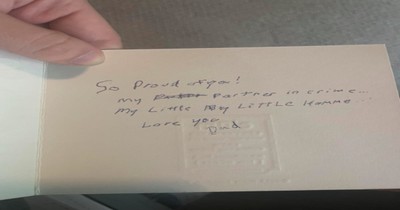 So Proud of you!
My Partner in crime...
My Little My Little Homme
Love you
Dad